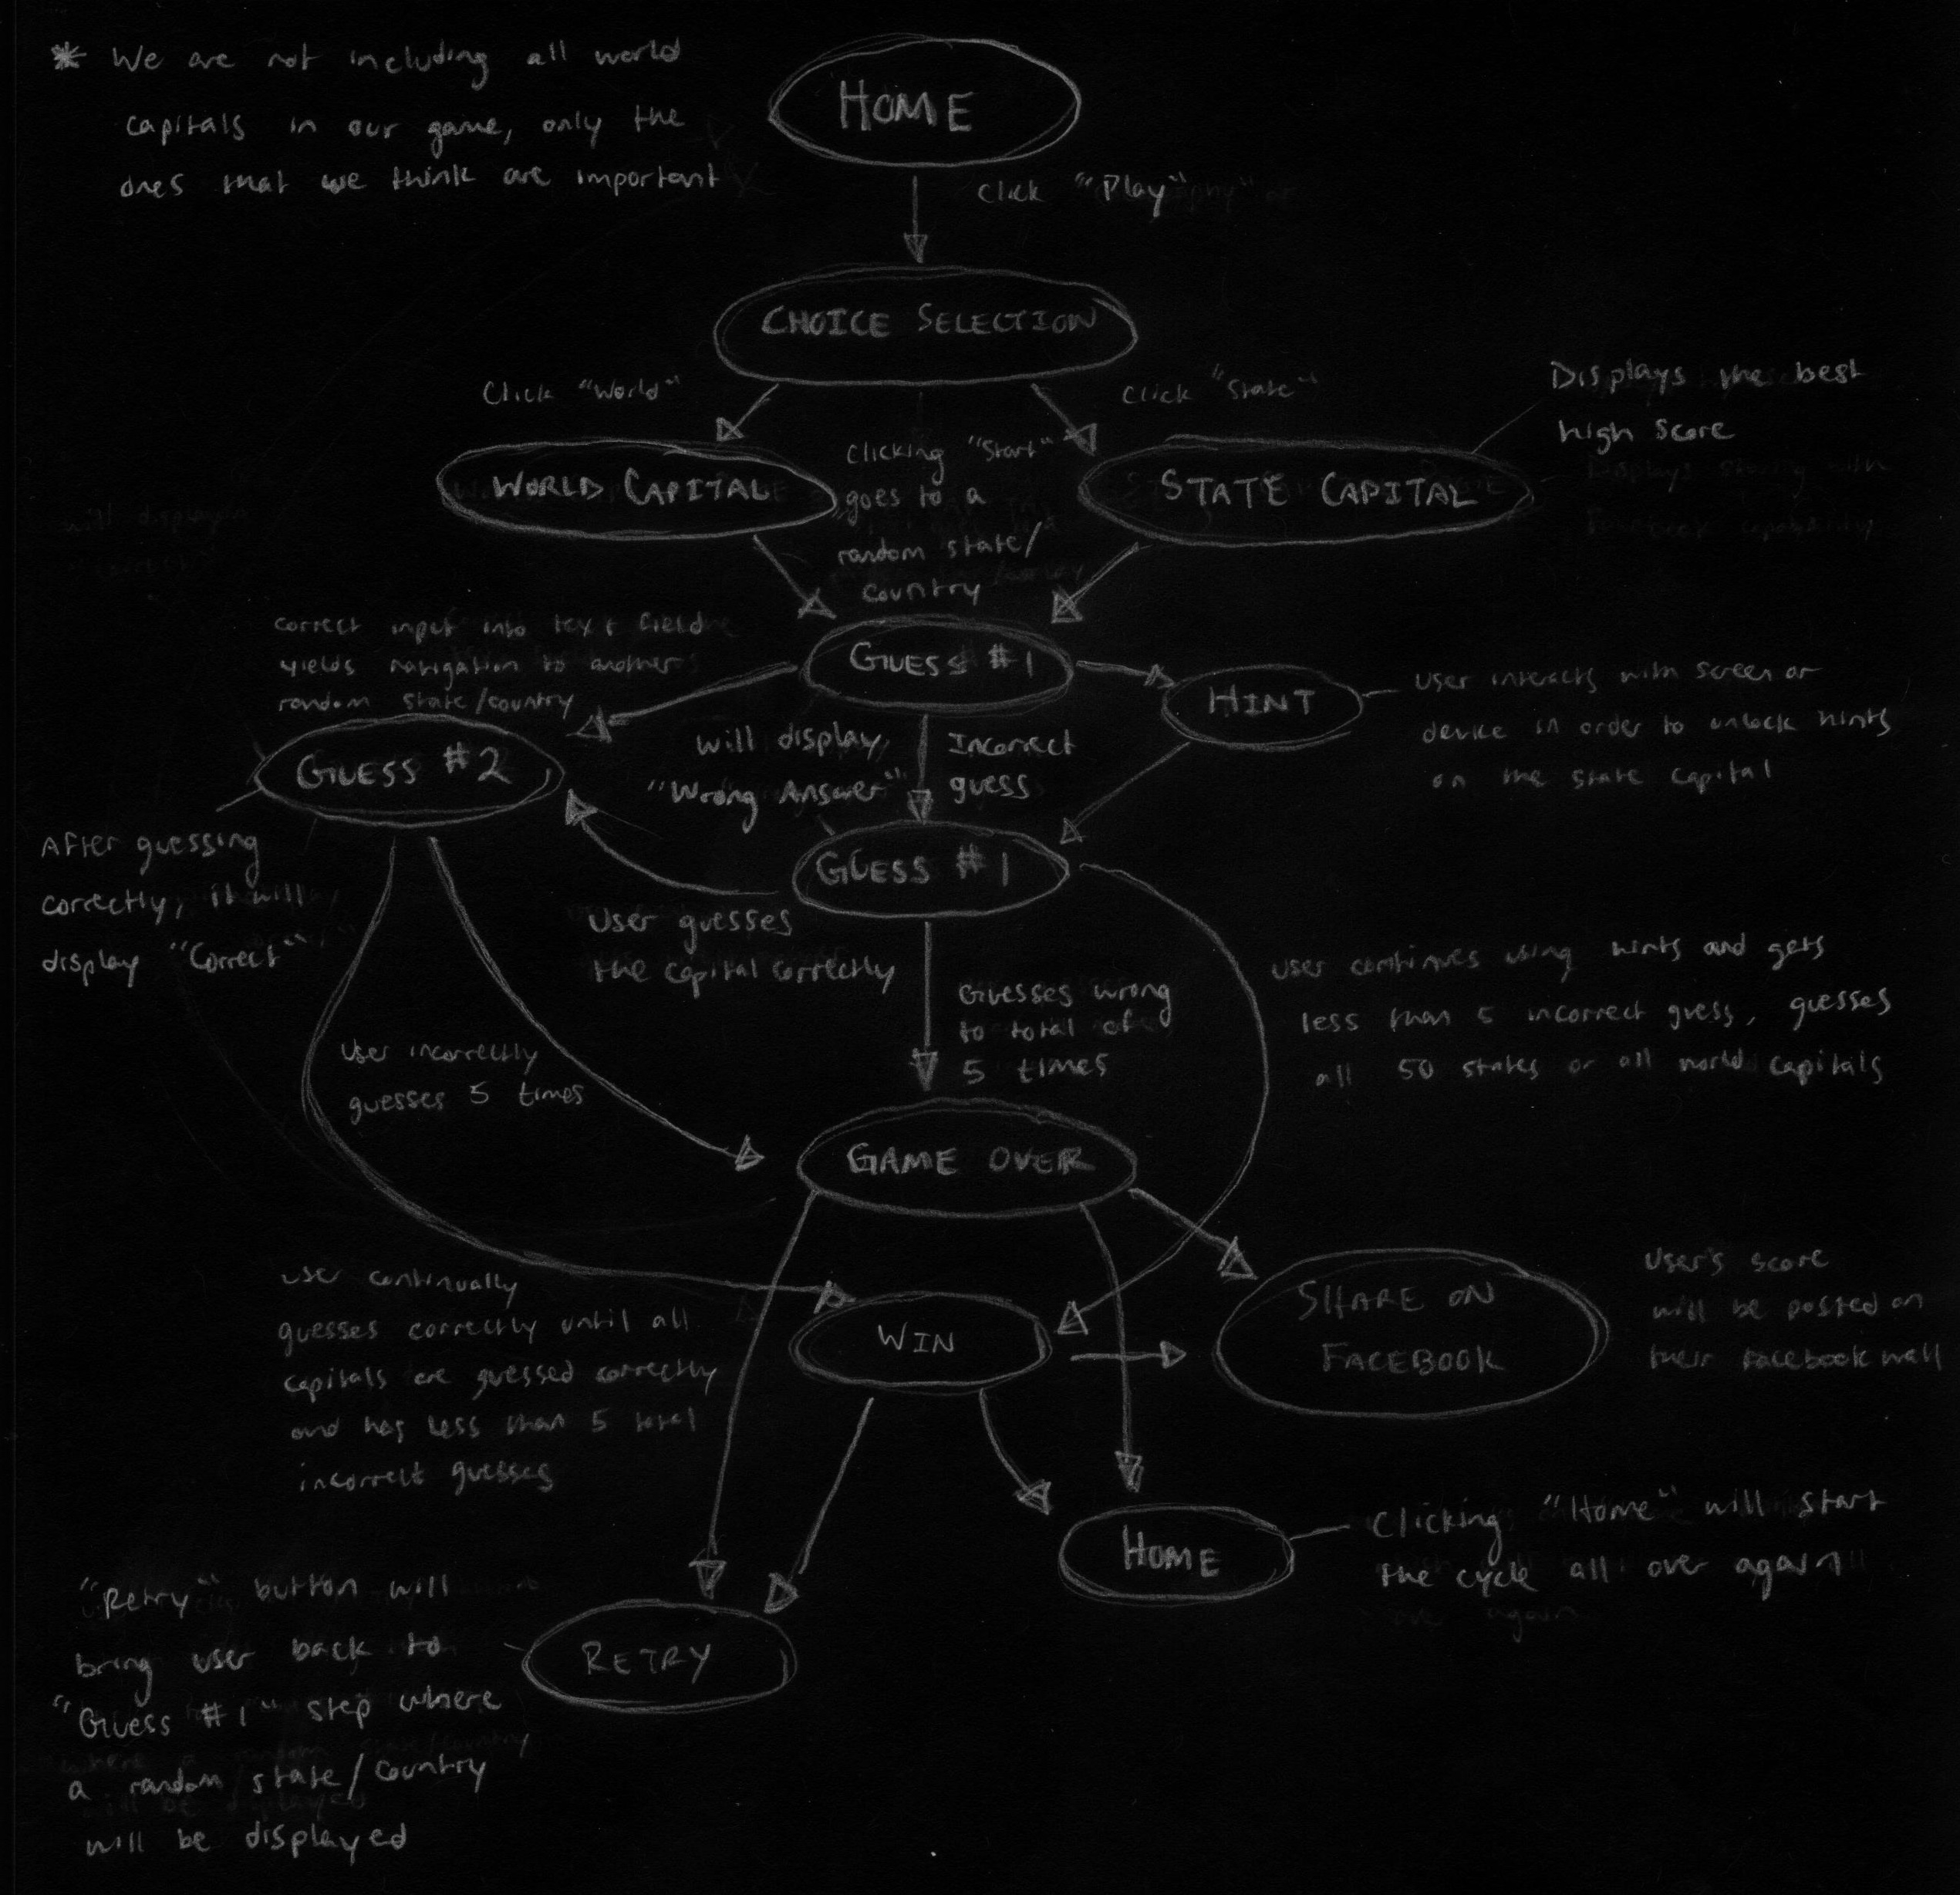 * We are not including all world
capitals in our game, only the
ones that we think are important
HOME
Click "Play"
CHOICE SELECTION
Click "World"
Click "State"
Displays the best
high score
WORLD CAPITAL
Clicking "Start"
goes to a
random state/
country
STATE CAPITAL
correct input into text field
yields navigation to another
random state/country
GUESS #1
HINT
User interacts with screen or
device in order to unlock hints
on the state capital
GUESS #2
will display
"Wrong Answer"
Incorrect
guess
After guessing
correctly, it will
display "Correct"
GUESS #1
User guesses
the capital correctly
Guesses wrong
to total of
5 times
User continues using hints and gets
less than 5 incorrect guess, guesses
all 50 states or all world capitals
User incorrectly
guesses 5 times
GAME OVER
User continually
guesses correctly until all
capitals are guessed correctly
and has less than 5 total
incorrect guesses
WIN
SHARE ON
FACEBOOK
User's score
will be posted on
their facebook wall
HOME
Clicking "Home" will start
the cycle all over again
"Retry" button will
bring user back to
"Guess #1" step where
a random state/country
will be displayed
RETRY